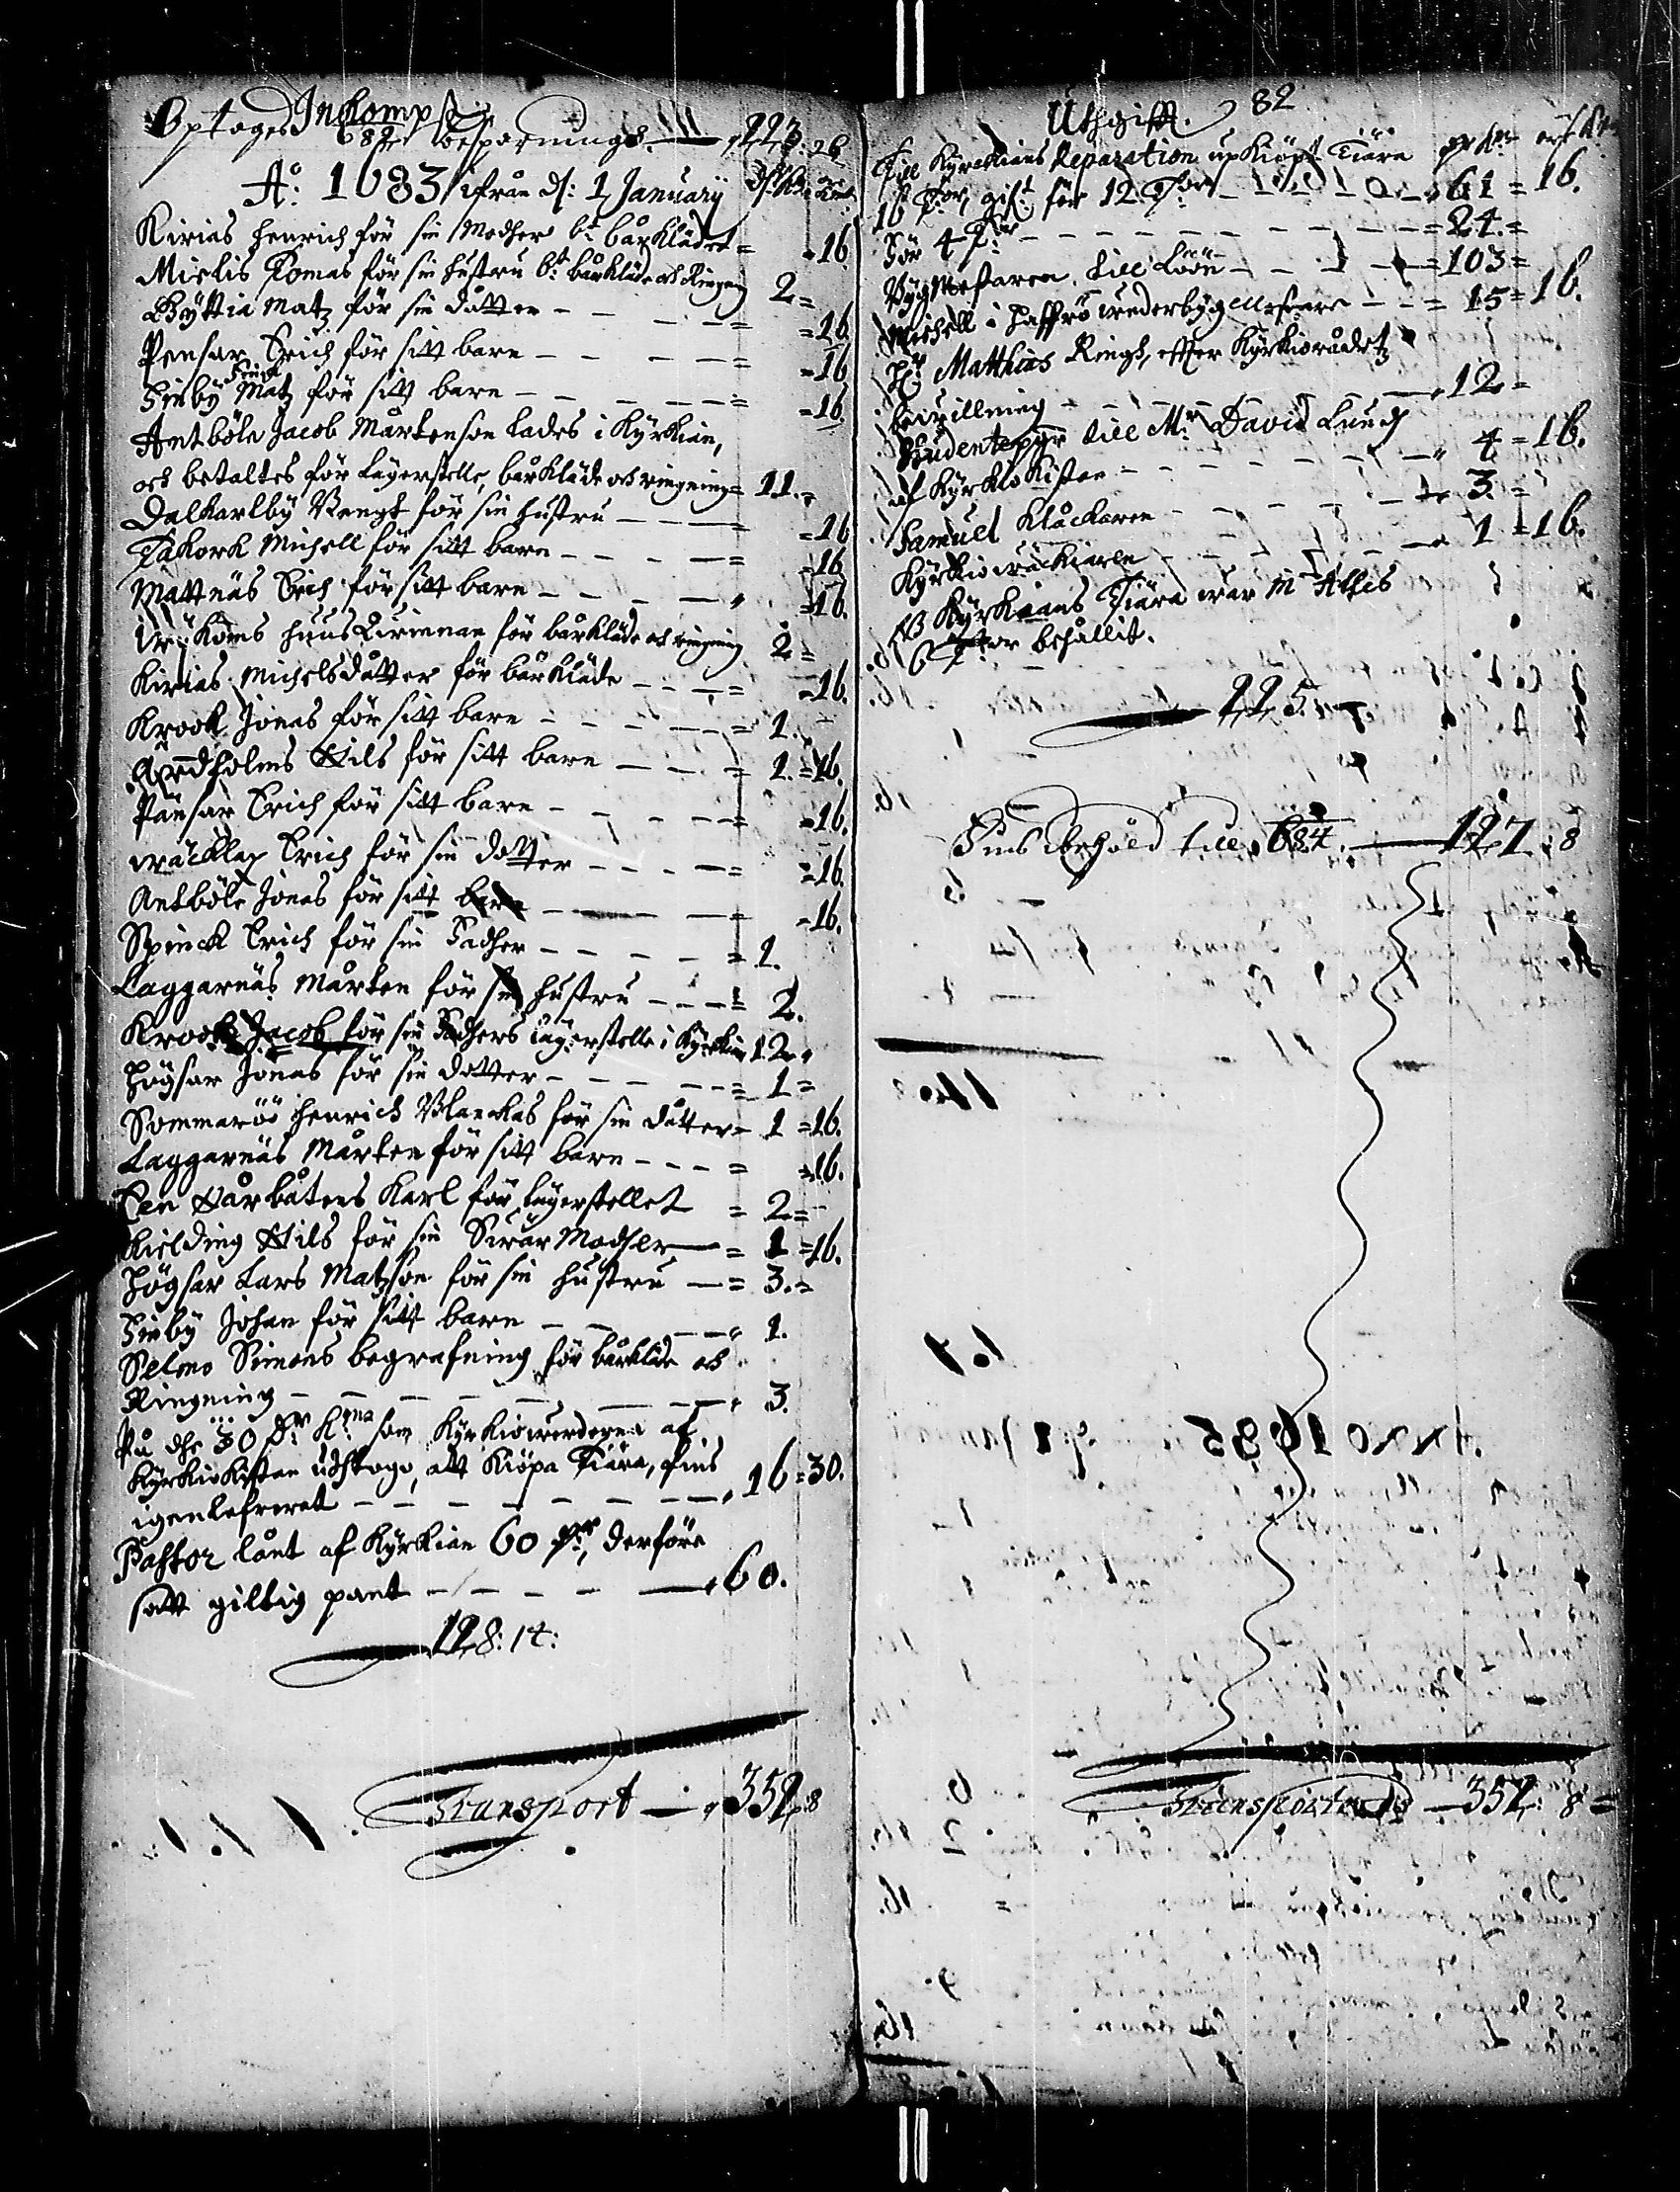 Inkompst
Optages 682 besparningh — 223: 26
Ao. 1683 ifrån d: 1 January
Kirias Henrich för sin Modher bt bårklädet = =16.
Mielis Tomas för sin hustru bt bårkläde och Ringning 2=
Byttia Matz för sin dåtter - - - =16
Pensar Erich för sitt barn - - - =16
Finby Matz för sitt barn - - - =16.
Antböle Jacob Mårtenson lades i Kyrkian,
och betaltes för lägerstelle, bårkläde och ringning = 11.=
Dalkarlby Bengt för sin hustru - - - =16
Takork Michell för sitt barn - - - =16
Mattnäs Erich för sitt barn - - - =16.
huusqwinnan för bårkläde och ringning 2=
Kirias Michelsdåtter för bårkläde - - - =16.
Krook Jonas för sitt barn - - - = 1.
holms Nils för sitt barn - - - = 1.=16.
Pänsar Erich för sitt barn - - - =16.
wräcklax Erich för sin dotter - - - =16.
Antböle Jonas för sitt barn - - - =16.
Spinck Erich för sin Fadher - - - = 1.
Laggarnäs Mårten för sin hustru - - - = 2.
Krook Jacob för sin Fadhers lägerstelle i Kyrkian 12.
Högsar Jonas för sin dotter - - - = 1=
Sommaröö Henrich Blanckas för sin dåtter = 1=16.
Laggarnäs Mårten för sitt barn - - - = =16.
Een karl för lägerstellet = 2=
Kielding Nils för sin Swär Modher — = 1=16.
Högsar Lars Matzson för sin hustru — = 3.=
Finby Johan för sitt barn - - - 1.
Simons begrafning för bårkläde och
Ringning - - - 3.
På dhe 30 Dr Kma som Kyrkiowerderna af
Kyrkiokistan uthtogo, att Kiöpa Tiära, fins
igenlefrerat - - - 16=30.
Pastor lånt af Kyrkian 60 Dr, derföre
satt giltig pant - - - 60.
128: 14:
Transport — 352: 8
Uthgifft. 82
Till Kyrckians Reparation upkiöpt Tiära
16 Tor, gift för 12 Tor - - - 61=16.
För 4 Tr - - - =24=
Bygmestaren till Löön - - - =103=
Michell i Haffrö underbygmestare - - = 15=16.
Hr Matthias Ringh, efter Kyrkiorådetz
bewillning - - - 12=
Studentepgr till Mr David Lund
af Kyrkiokistan - - - 4=16.
Samuel Klåckaren - - - 3.=
Kyrkiowäckiaren - - - 1=16.
NB Kyrkians Tiära war
6 Tor behållit.
225.
Fins behåld till 684. — 127: 8
Transporterås — 352: 8=